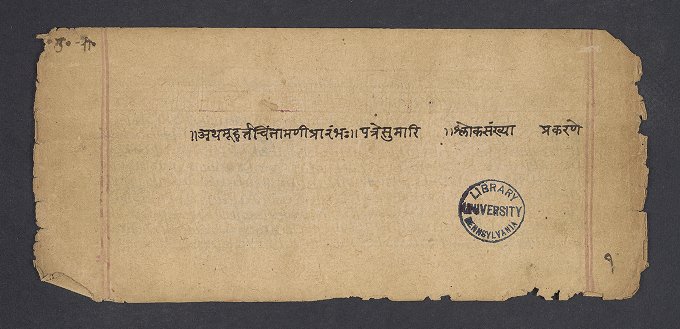 ॥अथमूहुर्तचिंतामणीप्रारंभः॥पत्रेसुमारि ॥श्लोकसंख्या प्रकरणे
LIBRARY
UNIVERSITY
PENNSYLVANIA
१